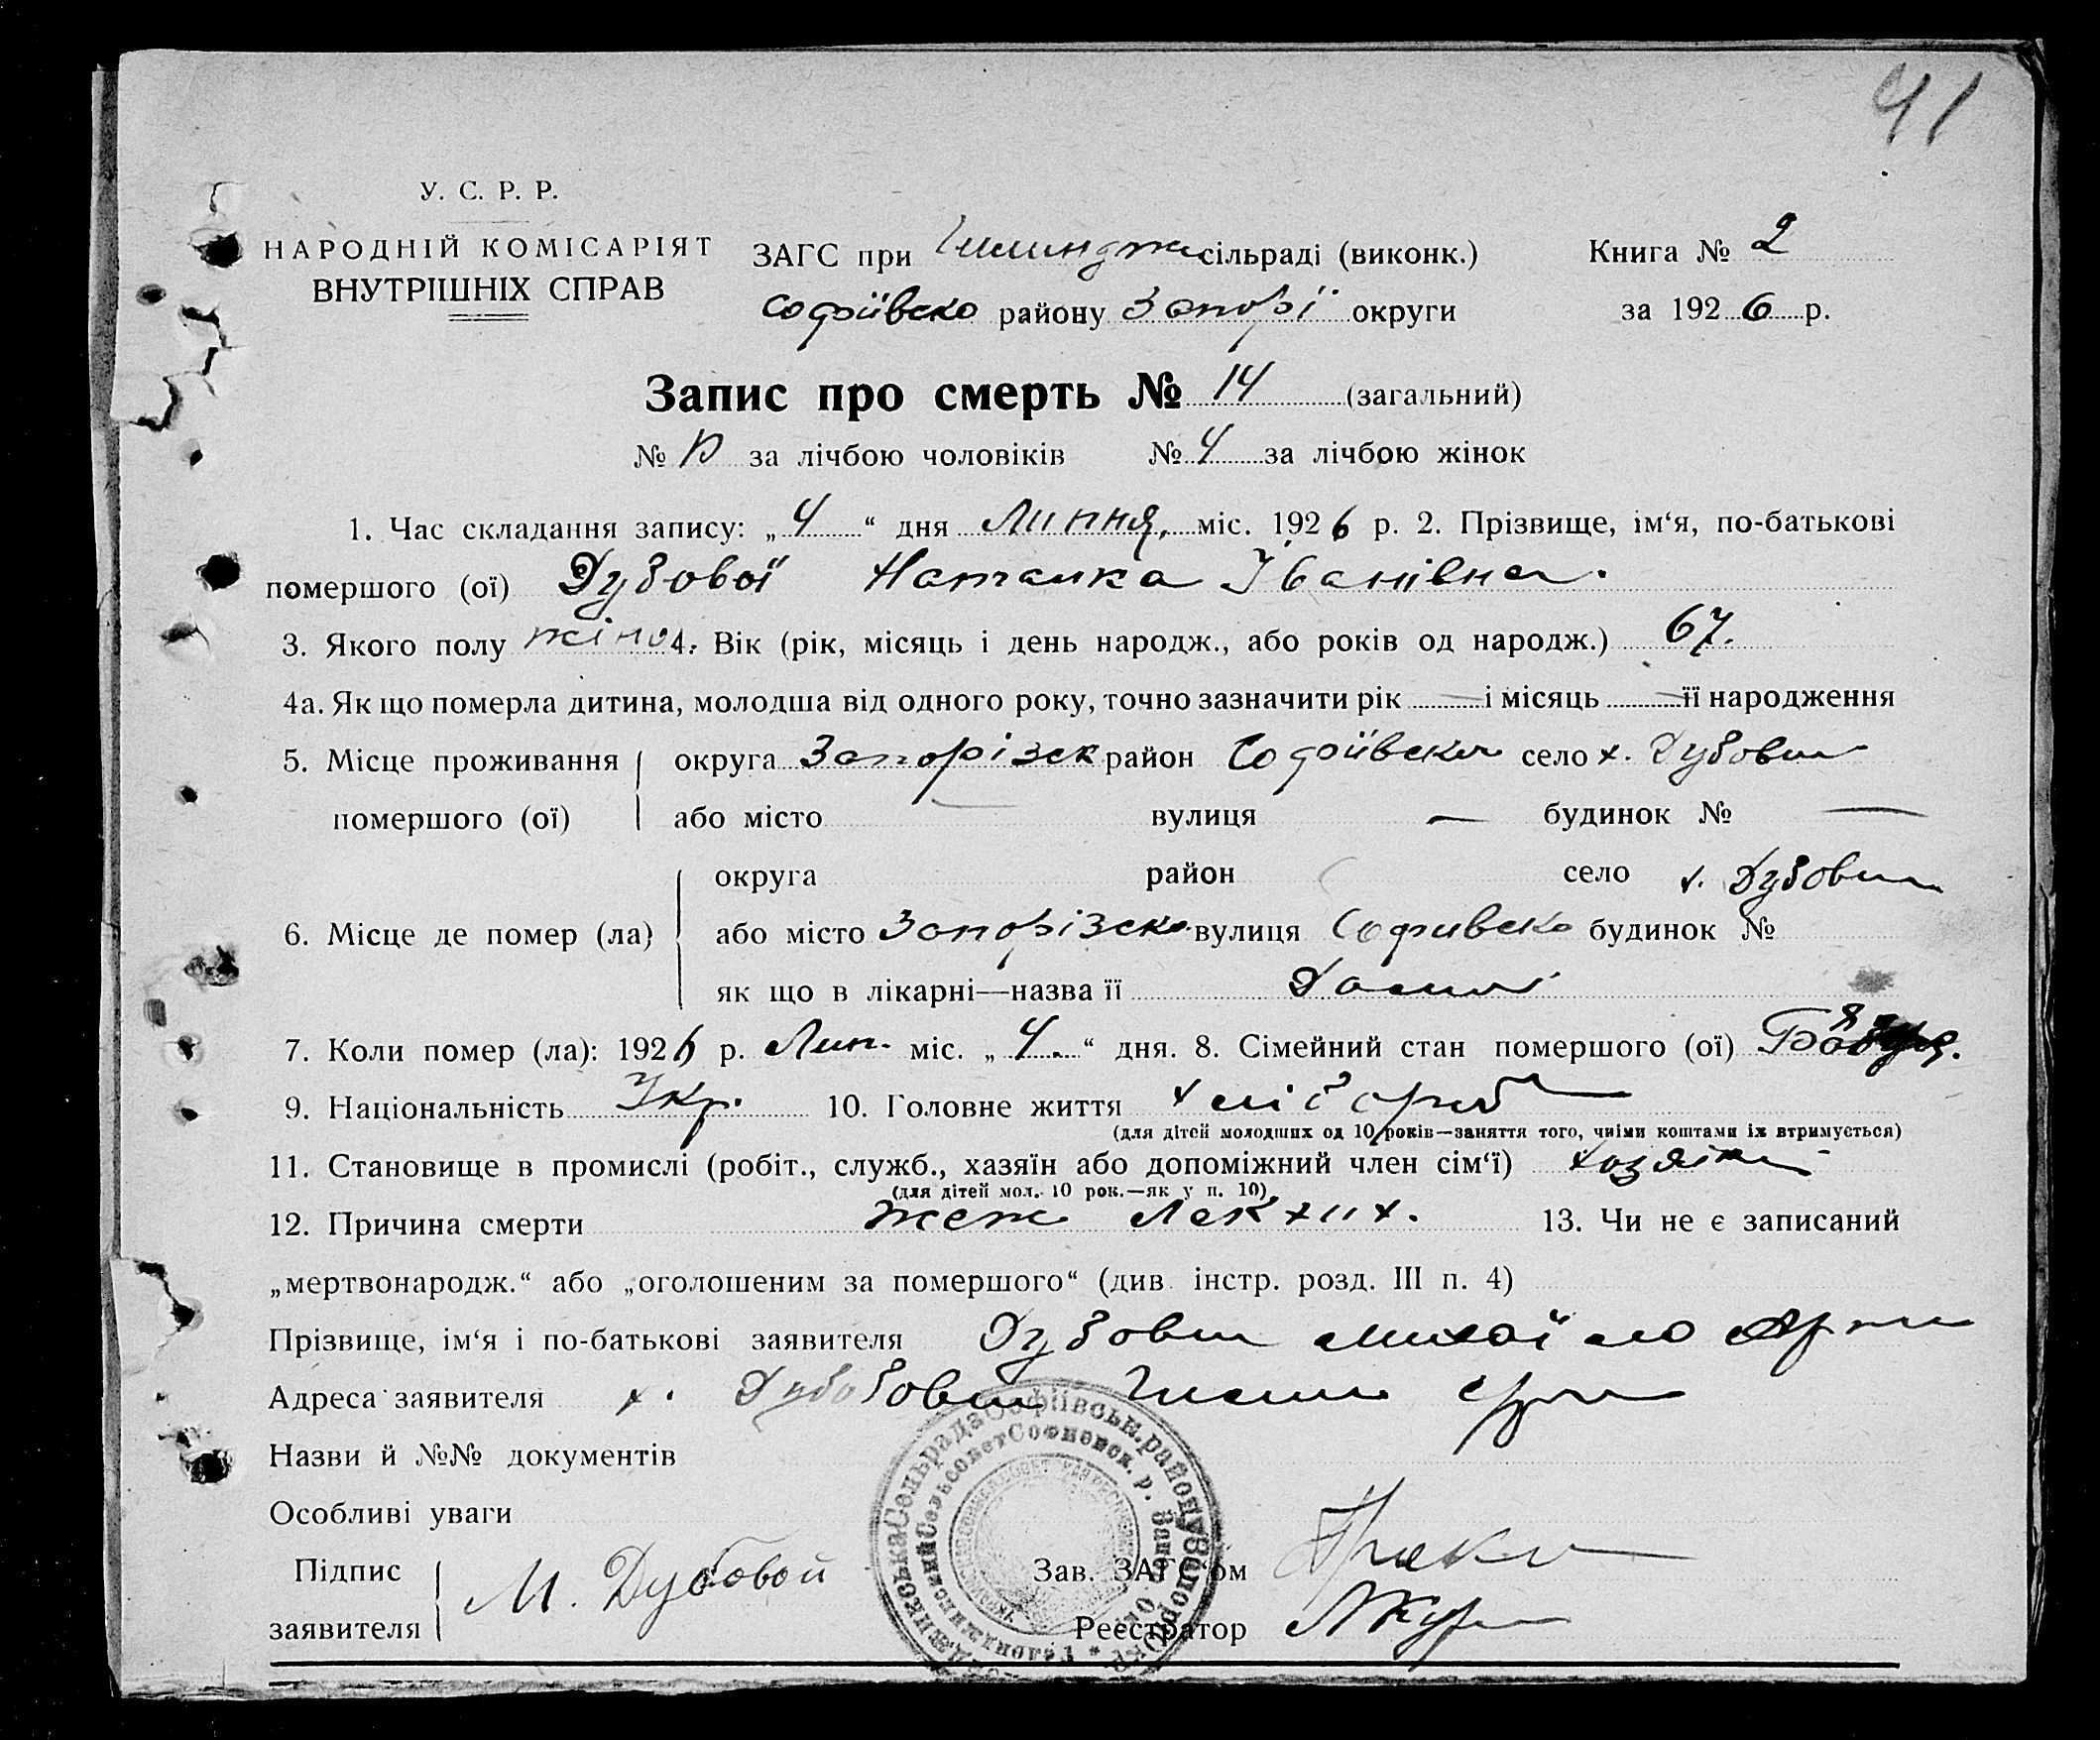 41
У. С. Р. Р.
НАРОДНІЙ КОМІСАРІЯТ
ВНУТРІШНІХ СПРАВ
ЗАГС при сільраді (виконк.)
Софіївско району Запорі округи
Книга № 2
за 1926 р.
Запис про смерть № 14 (загальний)
№ за лічбою чоловіків № 4 за лічбою жінок
1. Час складання запису: „4“ дня Липня, міс. 1926 р. 2. Прізвище, ім‘я, по-батькові
помершого (ої) Дубової Наталка Іванівна.
3. Якого полу жіно 4. Вік (рік, місяць і день народж., або років од народж.) 67.
4а. Як що померла дитина, молодша від одного року, точно зазначити рік — і місяць — її народження
5. Місце проживання округа Запорізск район Софіївско село х. Дубови
помершого (ої) або місто — вулиця — будинок № —
округа район село х. Дубови
6. Місце де помер (ла) або місто Запорізско вулиця Софиевско будинок №
як що в лікарні—назва її
7. Коли помер (ла): 1926 р. Лип. міс. „4.“ дня. 8. Сімейний стан помершого (ої)
9. Національність Укр. 10. Головне життя хлібороб
(для дітей молодших од 10 років—заняття того, чиїми коштами їх втримується)
11. Становище в промислі (робіт., служб., хазяїн або допоміжний член сім‘ї)
(для дітей мол. 10 рок.—як у п. 10)
12. Причина смерти 13. Чи не є записаний
„мертвонародж.“ або „оголошеним за помершого“ (див. інстр. розд. III п. 4)
Прізвище, ім‘я і по-батькові заявителя Дубови Михайло
Адреса заявителя х.
Назви й №№ документів
Особливі уваги
Підпис
заявителя М. Дубовой
Зав. ЗАГС‘ом
Реєстратор